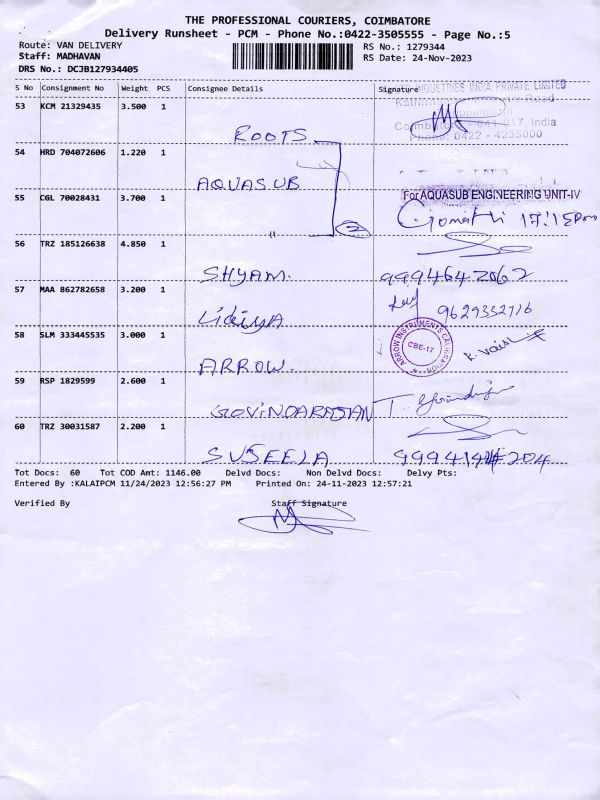 THE PROFESSIONAL COURIERS, COIMBATORE
Delivery Runsheet - PCM - Phone No.:0422-3505555 - Page No.:5
Route: VAN DELIVERY
RS No.: 1279344
Staff: MADHAVAN
RS Date: 24-Nov-2023
DRS No.: DCJB127934405
S No Consignment No Weight PCS Consignee Details Signature
INDUSTRIES INDIA PRIVATE LIMITED
Road
Coimbatore - 641 017, India
Phone: 0422 - 4235000
53 KCM 21329435 3.500 1
ROOTS
54 HRD 704072606 1.220 1
AQUASUB
For AQUASUB ENGINEERING UNIT-IV
55 CGL 70028431 3.700 1
2
Gomathi
56 TRZ 185126638 4.850 1
SHYAM. 9994642062
57 MAA 862782658 3.200 1
Lidiya 9629332716
58 SLM 333445535 3.000 1
ARROW INSTRUMENTS
CBE-17
ARROW.
59 RSP 1829599 2.600 1
GOVINDARAJAN
60 TRZ 30031587 2.200 1
SUSEELA
Tot Docs: 60 Tot COD Amt: 1146.00 Delvd Docs: Non Delvd Docs: Delvy Pts:
Entered By :KALAIPCM 11/24/2023 12:56:27 PM Printed On: 24-11-2023 12:57:21
Verified By Staff Signature